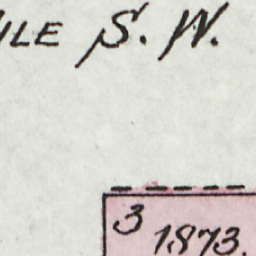 ILE S. W.
3
1873.